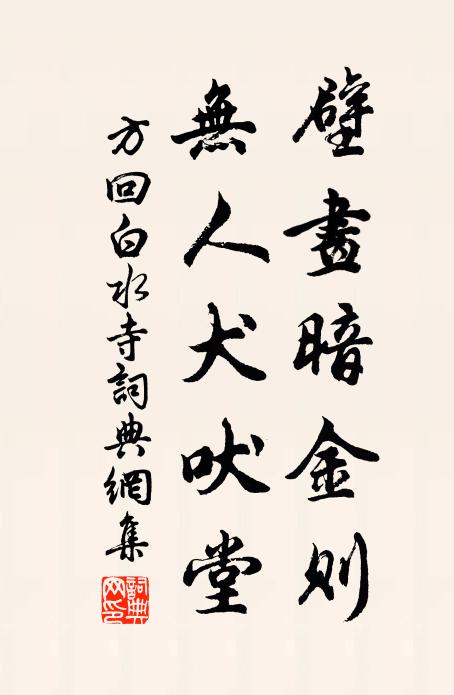 壁畫暗金則
無人犬吠堂
方回白水寺詞典網集
詞典網印